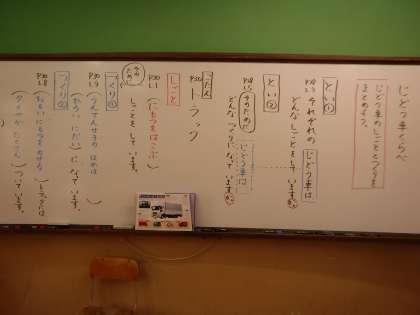 じどう車くらべ
じどう車のしごととつくりを
まとめよう。
とい①
P28
L3
それぞれの じどう車は
どんな しごとを して います か。
とい②
P28
L5
そのために
じどう車は
どんな つくりに なって います か。
P30
トラック
しごと
P30
L1
(にもつを はこぶ)
しごとを して います。
そのために
つくり①
P30
L3
(うんてんせきの ほかは)
(ひろい にだい) に なって います。
つくり②
P30
L8
(おもい にもつを のせる) トラックには
(タイヤが たくさん) ついて います。